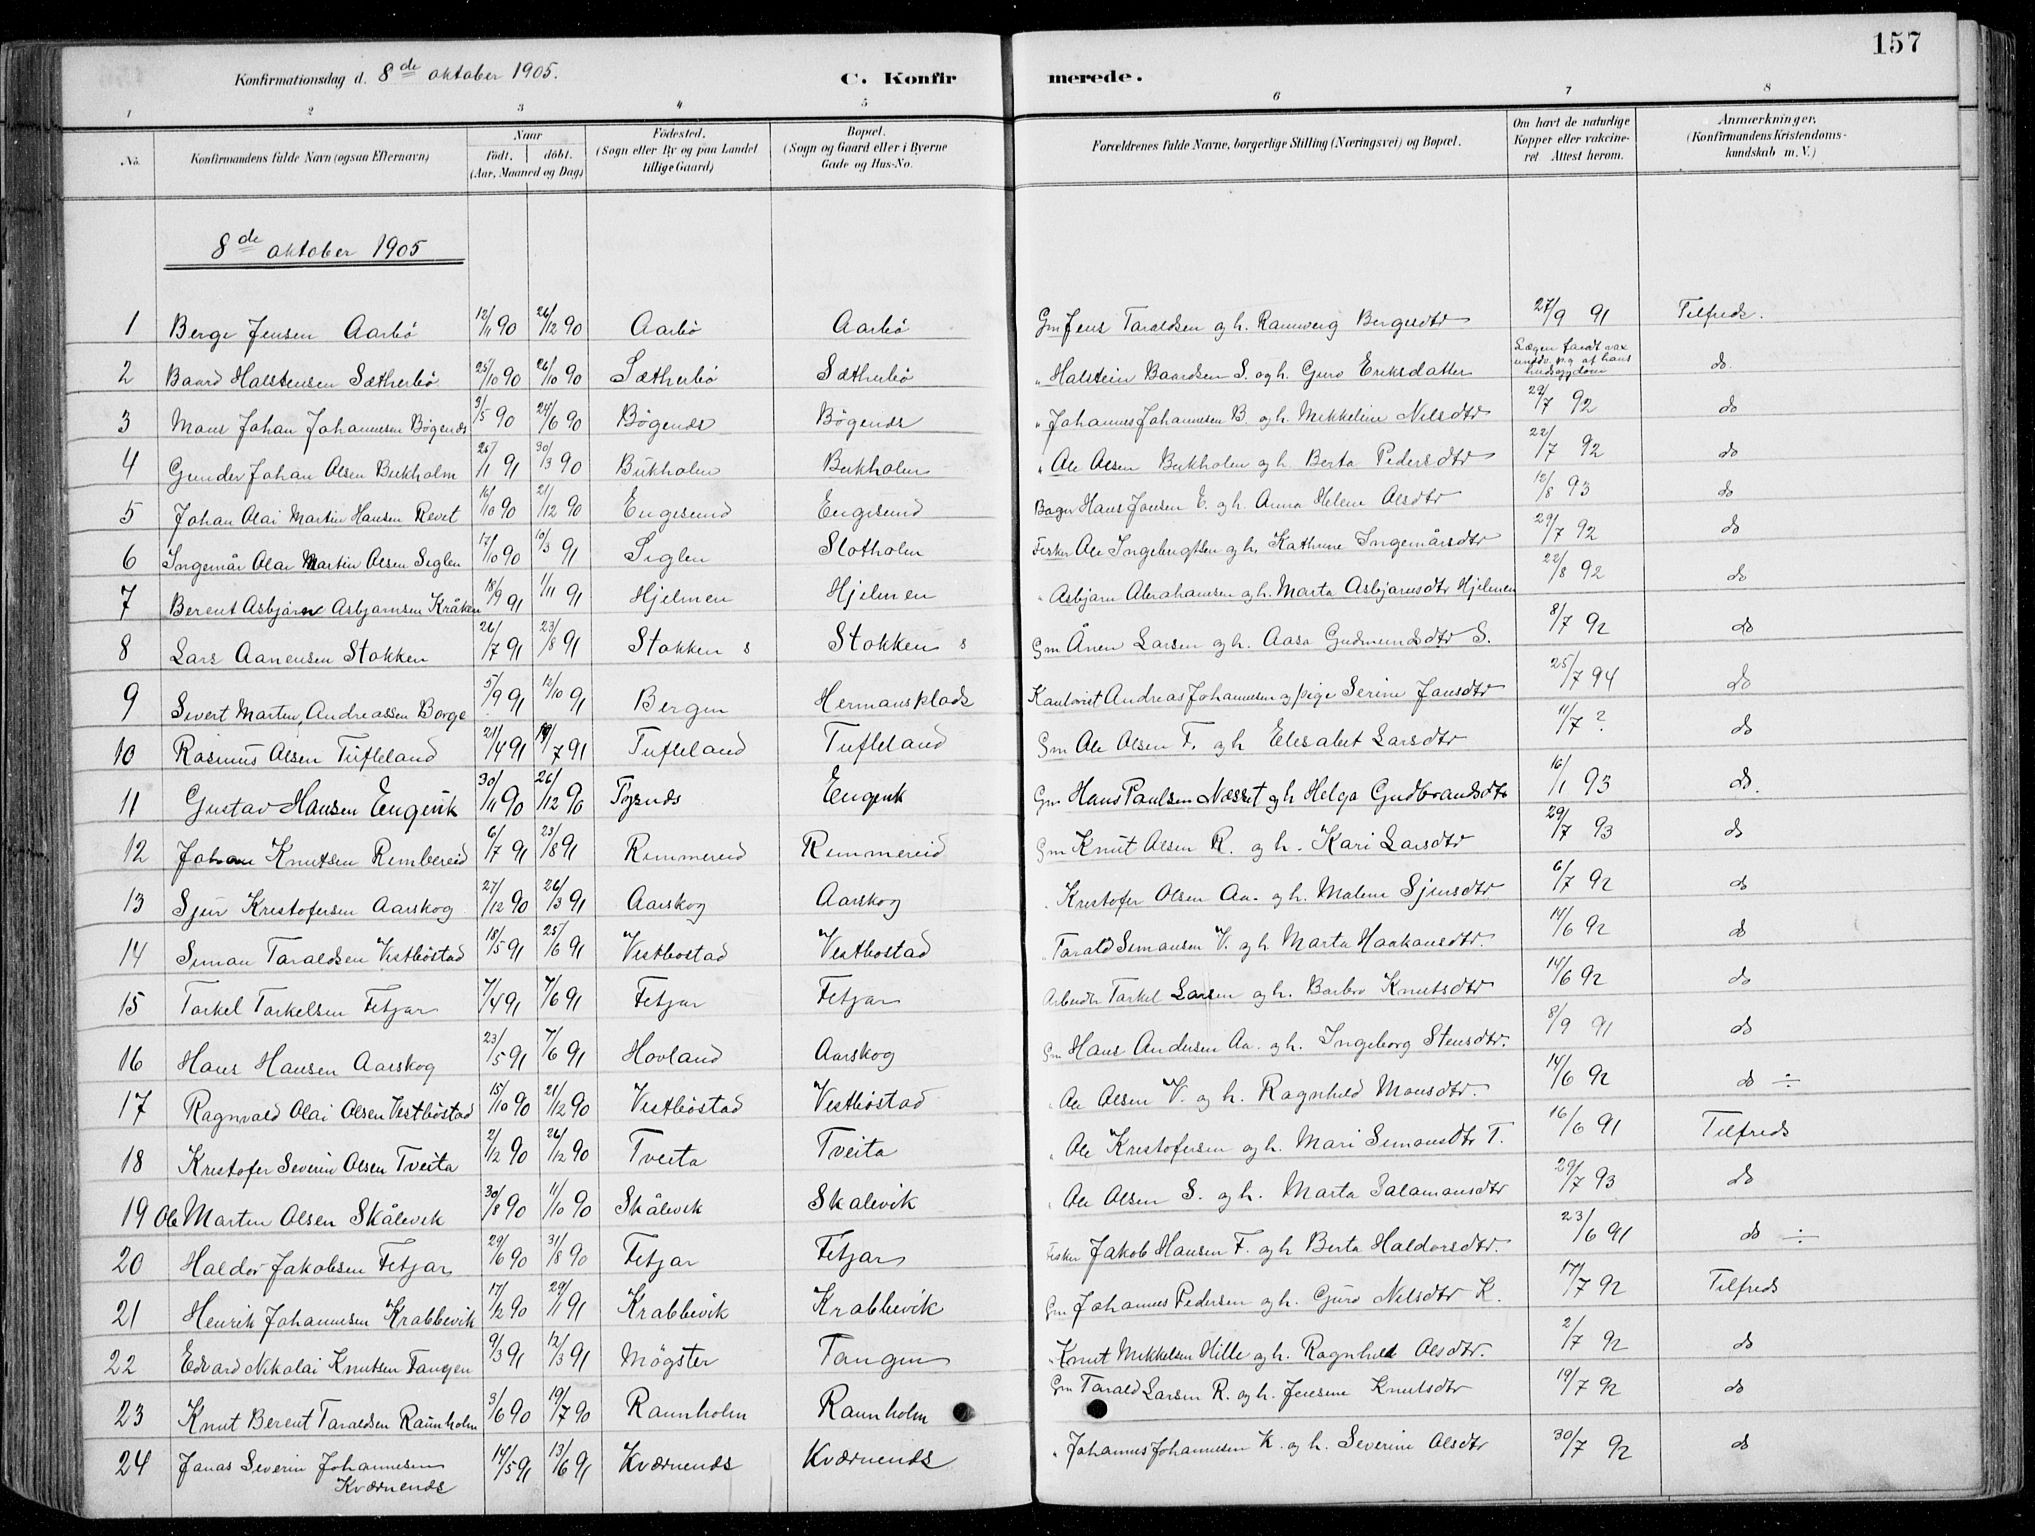 157
Konfirmationsdag d. 8de oktober 1905. C. Konfirmerede.
1 2 3 4 5 6 7 8
No. Konfirmandens fulde Navn (ogsaa Efternavn) Naar født. døbt. (Aar, Maaned og Dag) Fødested. (Sogn eller By og paa Landet tillige Gaard) Bopæl. (Sogn og Gaard eller i Byerne Gade og Hus-No. Forældrenes fulde Navne, borgerlige Stilling (Næringsvei) og Bopæl. Om havt de naturlige Kopper eller vakcineret. Attest herom. Anmærkninger, (Konfirmandens Kristendomskundskab m. V.)
8de oktober 1905
1 Berge Jensen Aarbö 12/11 90 26/12 90 Aarbö Aarbö Gm Jens Taraldsen og h. Rannveig Bergesdtr 27/9 91 Tilfreds.
2 Baard Halstensen Sætherbö 25/10 90 26/10 90 Sætherbö Sætherbö " Halstein Baardsen S. og h. Guro Eriksdatter Lægen fandt vax undv. p.g. af hans hudsygdom do.
3 Mons Johan Johannesen Bögends 3/5 90 24/6 90 Bögends Bögends " Johannes Johannesen B. og h. Mikkeline Nilsdtr 29/7 92 do
4 Gunder Johan Olsen Bukholm 25/1 91 30/3 90 Bukholm Bukholm " Ole Olsen Bukholm og h. Berta Pedersdtr 22/7 92 do
5 Johan Olai Martin Hansen Revet 16/10 90 21/12 90 Engesund Engesund Bager Hans Jansen E. og h. Anna Helene Olsdtr 12/8 93 do
6 Ingemår Olai Martin Olsen Siglen 17/10 90 10/3 91 Siglen Slotholm Fisker Ole Ingebrigtsen og h. Kathrine Ingemårsdtr 29/7 92 do
7 Berent Asbjørn Asbjørnsen Kråken 18/9 91 1/11 91 Hjelmen Hjelmen " Asbjørn Abrahamsen og h. Marta Asbjørnsdtr Hjelmen 22/8 92 do
8 Lars Aanensen Stokken 26/7 91 23/8 91 Stokken s Stokken s Gm Ånen Larsen og h. Aasa Gudmundsdtr S. 8/7 92 do
9 Sivert Martin Andreassen Borge 5/9 91 12/10 91 Bergen Hermansplads Kantorist Andreas Johannesen og pige Serine Jansdtr 25/7 94 do
10 Rasmus Olsen Tufteland 21/4 91 19/7 91 Tufteland Tufteland Gm Ole Olsen T. og h Elisabet Larsdtr 11/7 ? do
11 Gustav Hansen Engevik 30/11 90 26/12 90 Tysnds Engevik Gm Hans Paulsen Nesset og h Helga Gudbrandsdtr 16/1 93 do.
12 Johan Knutsen Rembereid 6/7 91 23/8 91 Rimmereid Rimmereid Gm Knut Olsen R. og h. Kari Larsdtr 29/7 93 do
13 Sjur Kristofersen Aarskog 27/12 90 26/3 91 Aarskog Aarskog " Kristofer Olsen Aa. og h. Malene Sjursdtr 6/7 92 do
14 Simon Taraldsen Vestböstad 18/5 91 25/6 91 Vestbostad Vestbostad " Tarald Simonsen V. og h Marta Haakonsdtr. 14/6 92 do
15 Torkel Torkelsen Fitjar 7/4 91 7/6 91 Fitjar Fitjar Arbeider Torkel Larsen og h. Barbro Knutsdtr 14/6 92 do
16 Hans Hansen Aarskog 23/5 91 7/6 91 Hovland Aarskog Gm Hans Andersen Aa. og h. Ingeborg Stensdtr. 8/9 91 do
17 Ragnvald Olai Olsen Vestböstad 15/10 90 21/12 90 Vestböstad Vestböstad " Ole Olsen V. og h. Ragnhild Monsdtr. 14/6 92 do ÷
18 Kristofer Severin Olsen Tveita 2/12 90 26/12 90 Tveita Tveita " Ole Kristofersen og h. Mari Simonsdtr T. 16/6 91 Tilfreds
19 Ole Martin Olsen Skålevik 30/8 90 11/10 90 Skålevik Skalevik " Ole Olsen S. og h. Marta Salamonsdtr 29/7 93 do
20 Haldor Jakobsen Fitjar 29/6 90 31/8 90 Fitjar Fitjar Fisker Jakob Hansen F. og h Berta Haldorsdtr. 23/6 91 do ÷
21 Henrik Johannesen Krabbevik 17/12 90 29/1 91 Krabbevik Krabbevik Gm Johannes Pedersen og h. Guro Nilsdtr K. 17/7 92 Tilfreds
22 Edvard Nikolai Knutsen Tangen 9/3 91 12/3 91 Mögster Tangen " Knut Mikkelsen Hille og h. Ragnhild Olsdtr. 2/7 92 do
23 Knut Berent Taraldsen Raunholm 3/6 90 19/7 90 Raunholm Raunholm Gm Tarald Larsen R. og h. Jensine Knutsdtr 19/7 92 do
24 Jonas Severin Johannesen Kværnends 14/5 91 13/6 91 Kværnends Kværnends " Johannes Johannesen K. og h. Severine Olsdtr 30/7 92 do